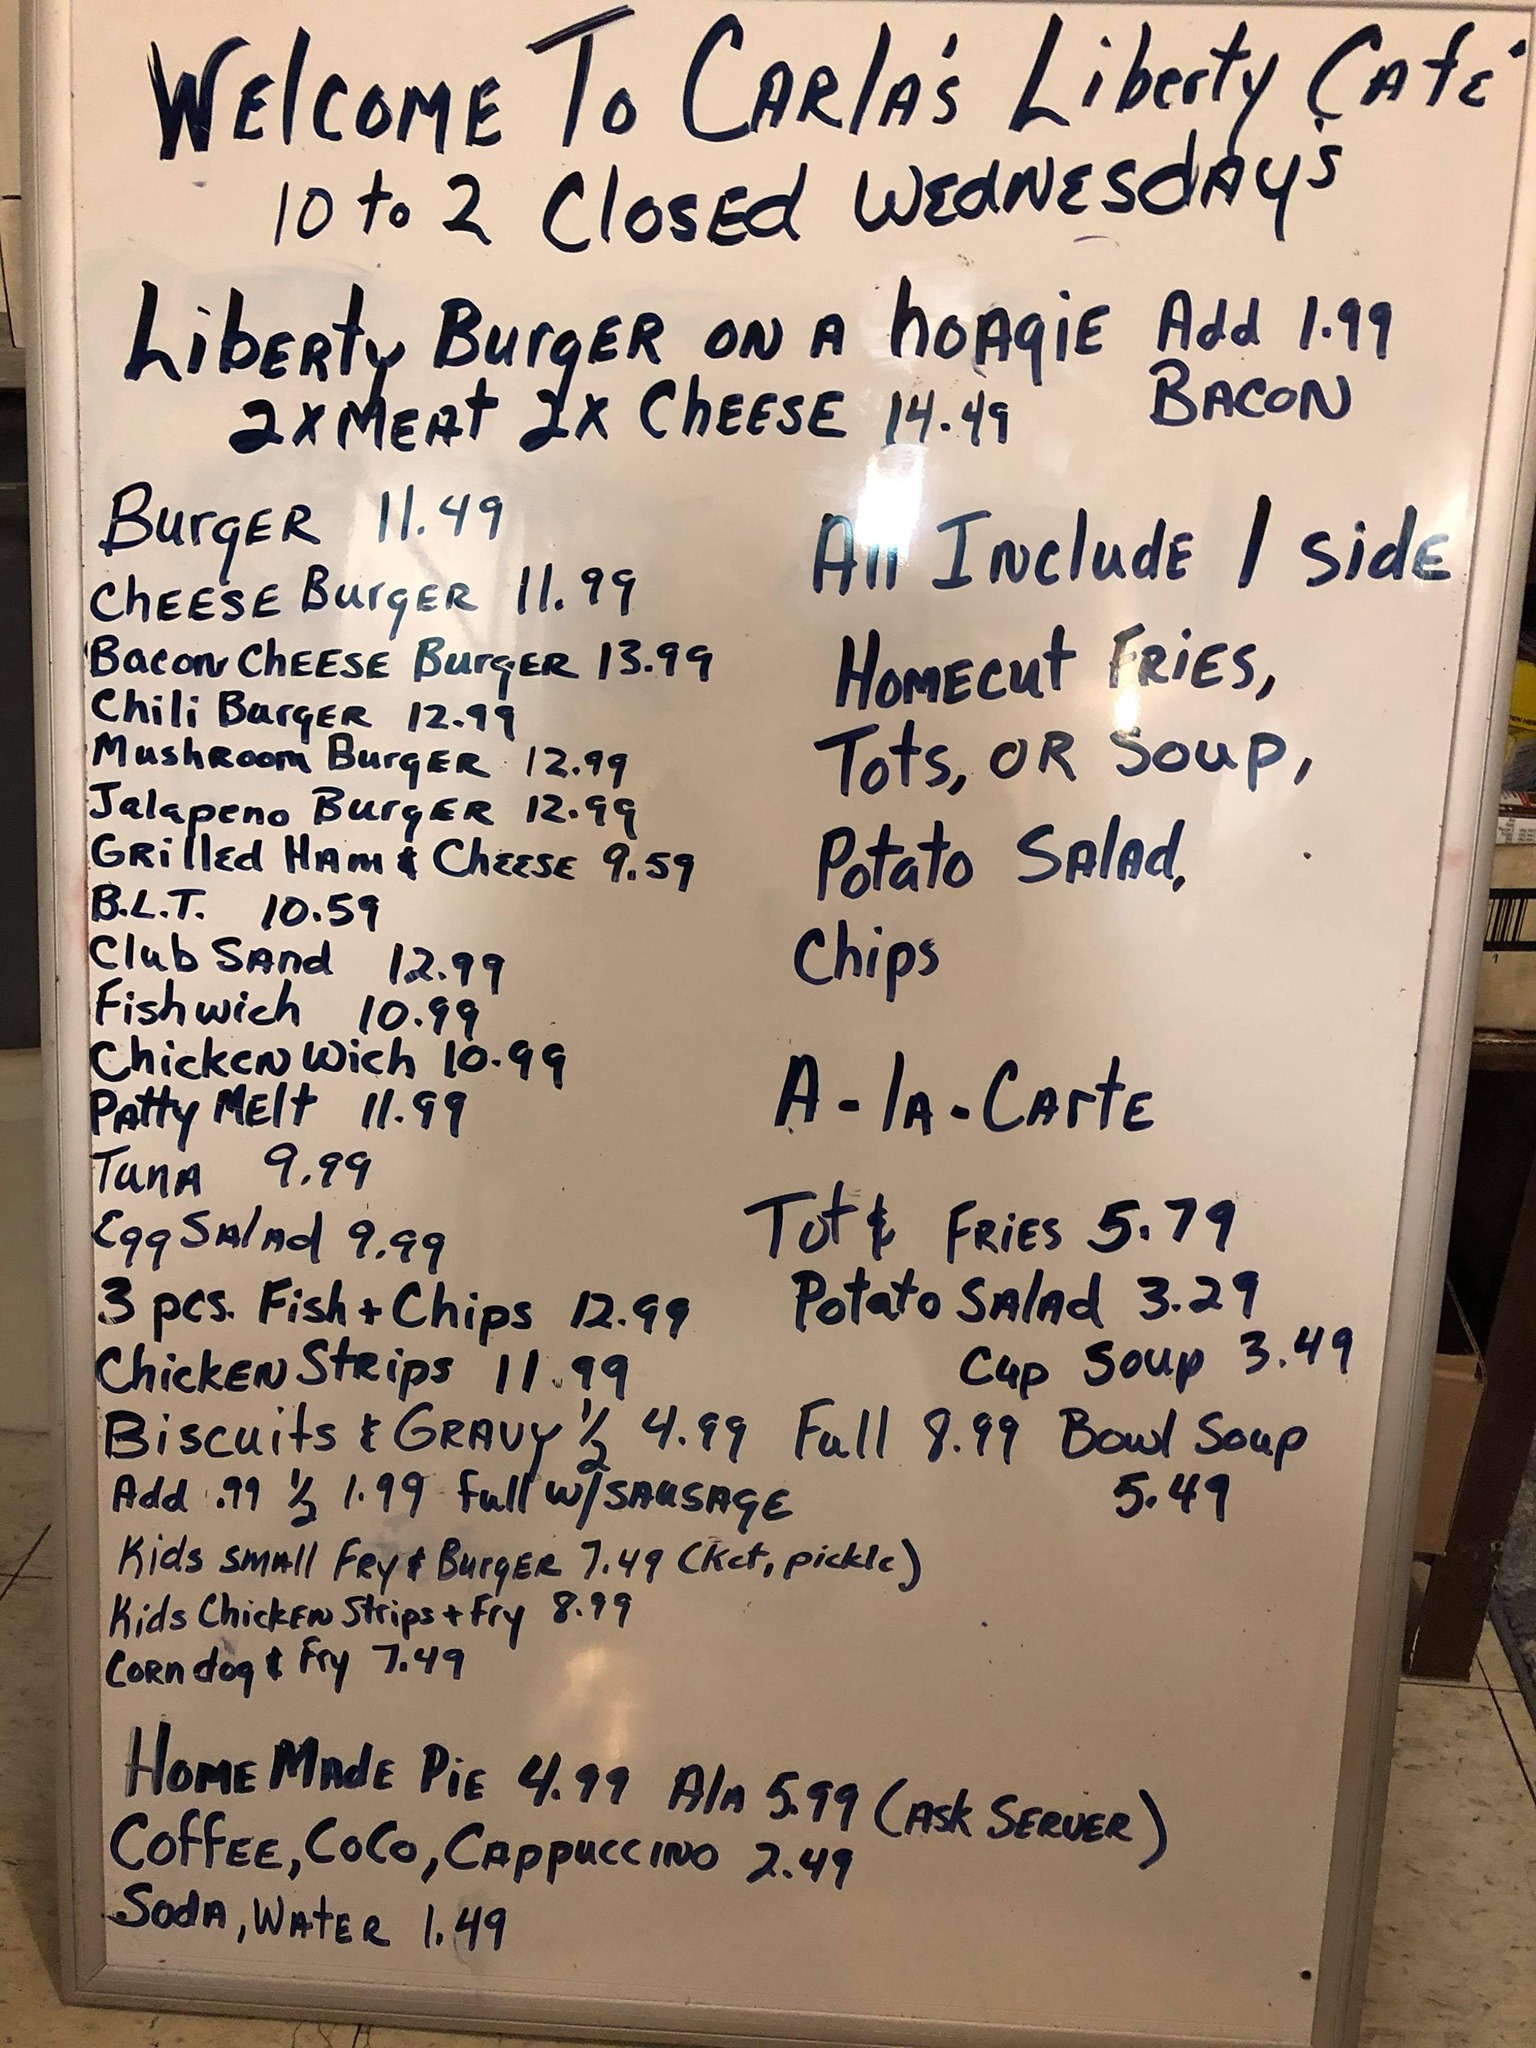 Welcome To Carla's Liberty Café
10 to 2 Closed Wednesday's
Liberty Burger on a hoagie Add 1.99
2x Meat 2x Cheese 14.49 Bacon
Burger 11.49
Cheese Burger 11.99
Bacon Cheese Burger 13.99
Chili Burger 12.99
Mushroom Burger 12.99
Jalapeno Burger 12.99
Grilled Ham & Cheese 9.59
B.L.T. 10.59
Club Sand 12.99
Fishwich 10.99
Chicken Wich 10.99
Patty Melt 11.99
Tuna 9.99
Egg Salad 9.99
3 pcs. Fish + Chips 12.99
Chicken Strips 11.99
All Include 1 side
Homecut Fries,
Tots, or Soup,
Potato Salad,
Chips
A-la-Carte
Tot & Fries 5.79
Potato Salad 3.29
Cup Soup 3.49
Bowl Soup
5.49
Biscuits & Gravy 1/2 4.99 Full 8.99
Add .99 1/2 1.99 full w/sausage
Kids small Fry & Burger 7.49 (Ket, pickle)
Kids Chicken Strips + Fry 8.99
Corn dog & Fry 7.49
Home Made Pie 4.99 Ala 5.99 (Ask Server)
Coffee, CoCo, Cappuccino 2.49
Soda, Water 1.49